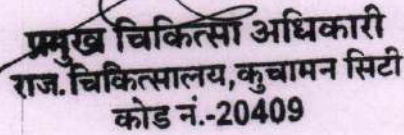 प्रमुख चिकित्सा अधिकारी
राज. चिकित्सालय,कुचामन सिटी
कोड नं.-20409